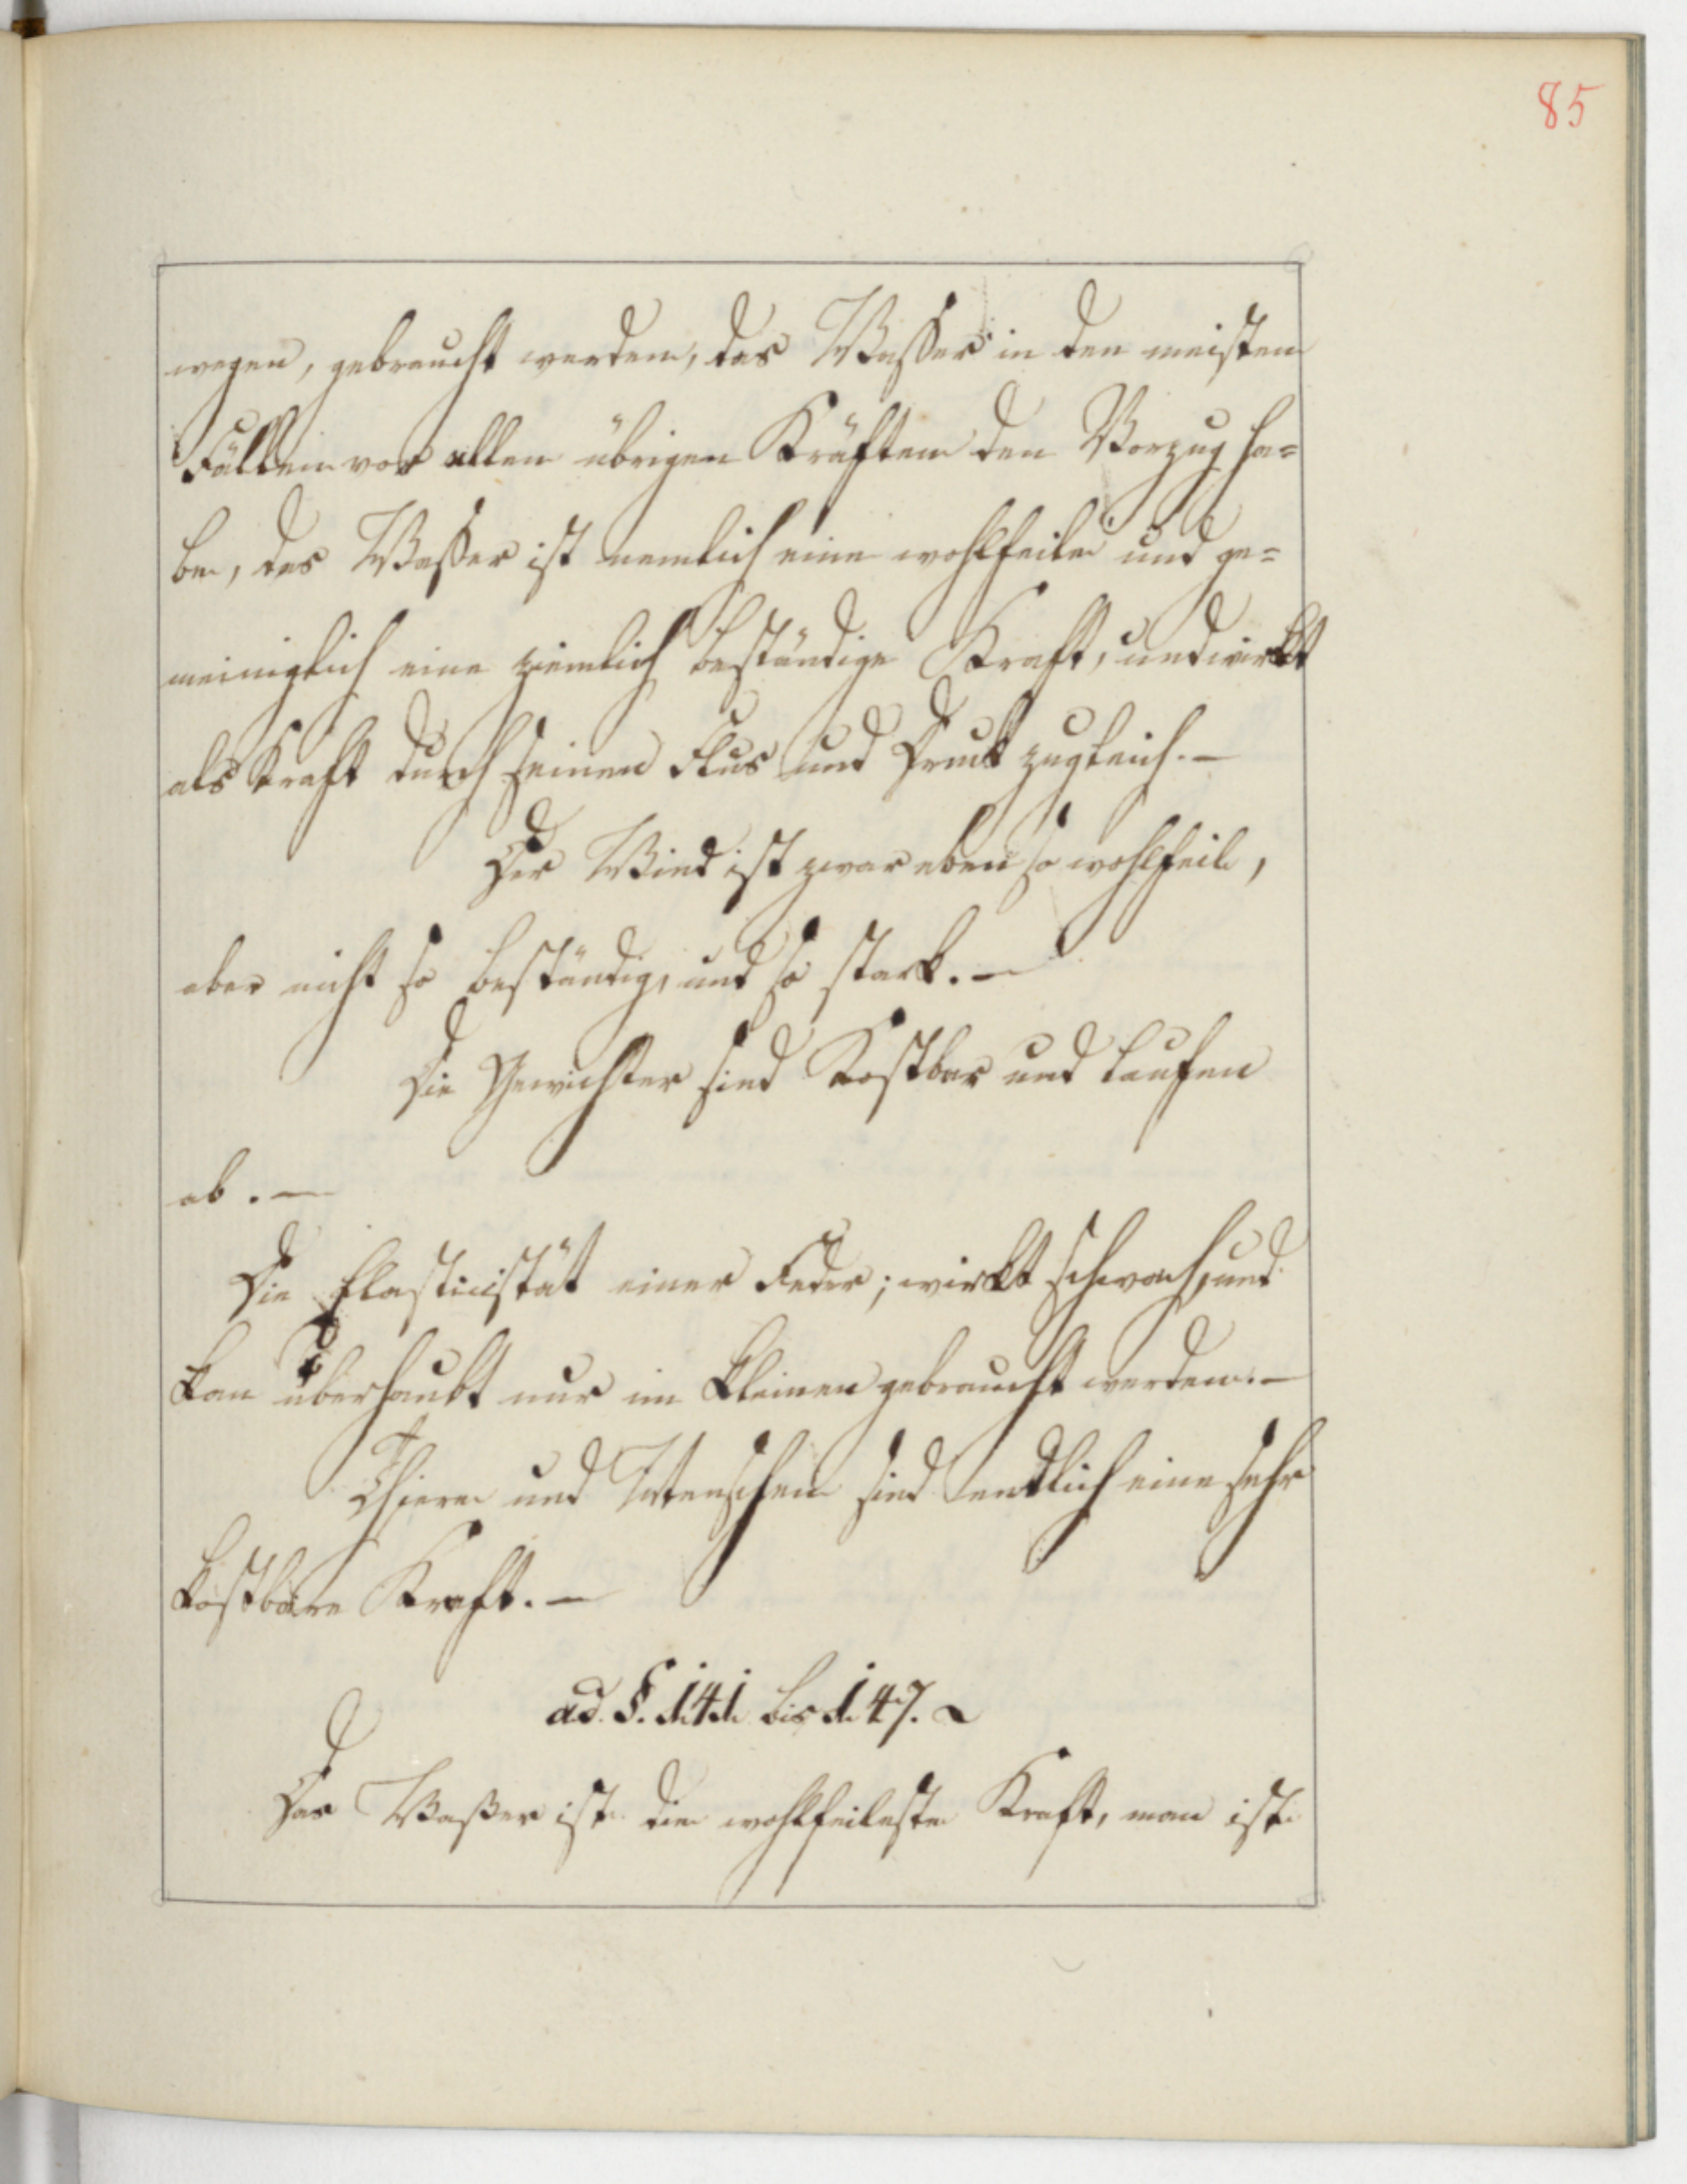 85
wegen, gebraucht werden, das Wasser in den meisten
Fällen vor allen übrigen Kräften den Vorzug ha=
be, das Wasser ist nemlich eine wohlfeile und ge=
meiniglich eine ziemlich beständige Kraft, und wirkt
als Kraft durch seinen Flus und Druck zugleich. —
Der Wind ist zwar eben so wohlfeil,
aber nicht so beständig, und so stark. —
Die Gewichter sind Kostbar und laufen
ab. —
Die Elasticistät einer Feder; wirkt schwach, und
kan überhaubt nur im kleinen gebraucht werden. —
Thiere und Menschen sind endlich eine sehr
kostbare Kraft. —
ad. §. 141. bis 147.
Das Waßer ist die wohlfeileste Kraft, man ist